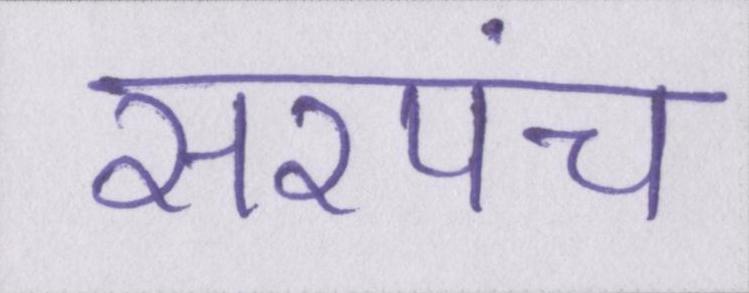 सरपंच